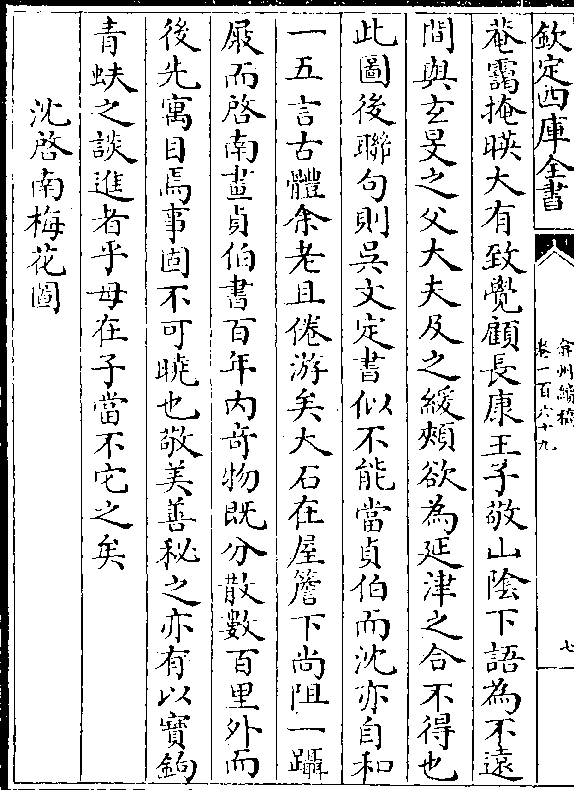 欽定四庫全書
弇州續稿
卷一百六十九
七
菴靄掩暎大有致覺顧長康王子敬山陰下語為不遠
間與玄旻之父大夫及之緩頰欲為延津之合不得也
此圖後聯句則吳文定書似不能當貞伯而沈亦自和
一五言古體余老且倦游矣大石在屋簷下尚阻一躡
屐而啓南畫貞伯書百年内竒物既分散數百里外而
後先寓目焉事固不可曉也敬美善秘之亦有以寶鉤
青蚨之談進者乎毋在子當不它之矣
沈啓南梅花圖